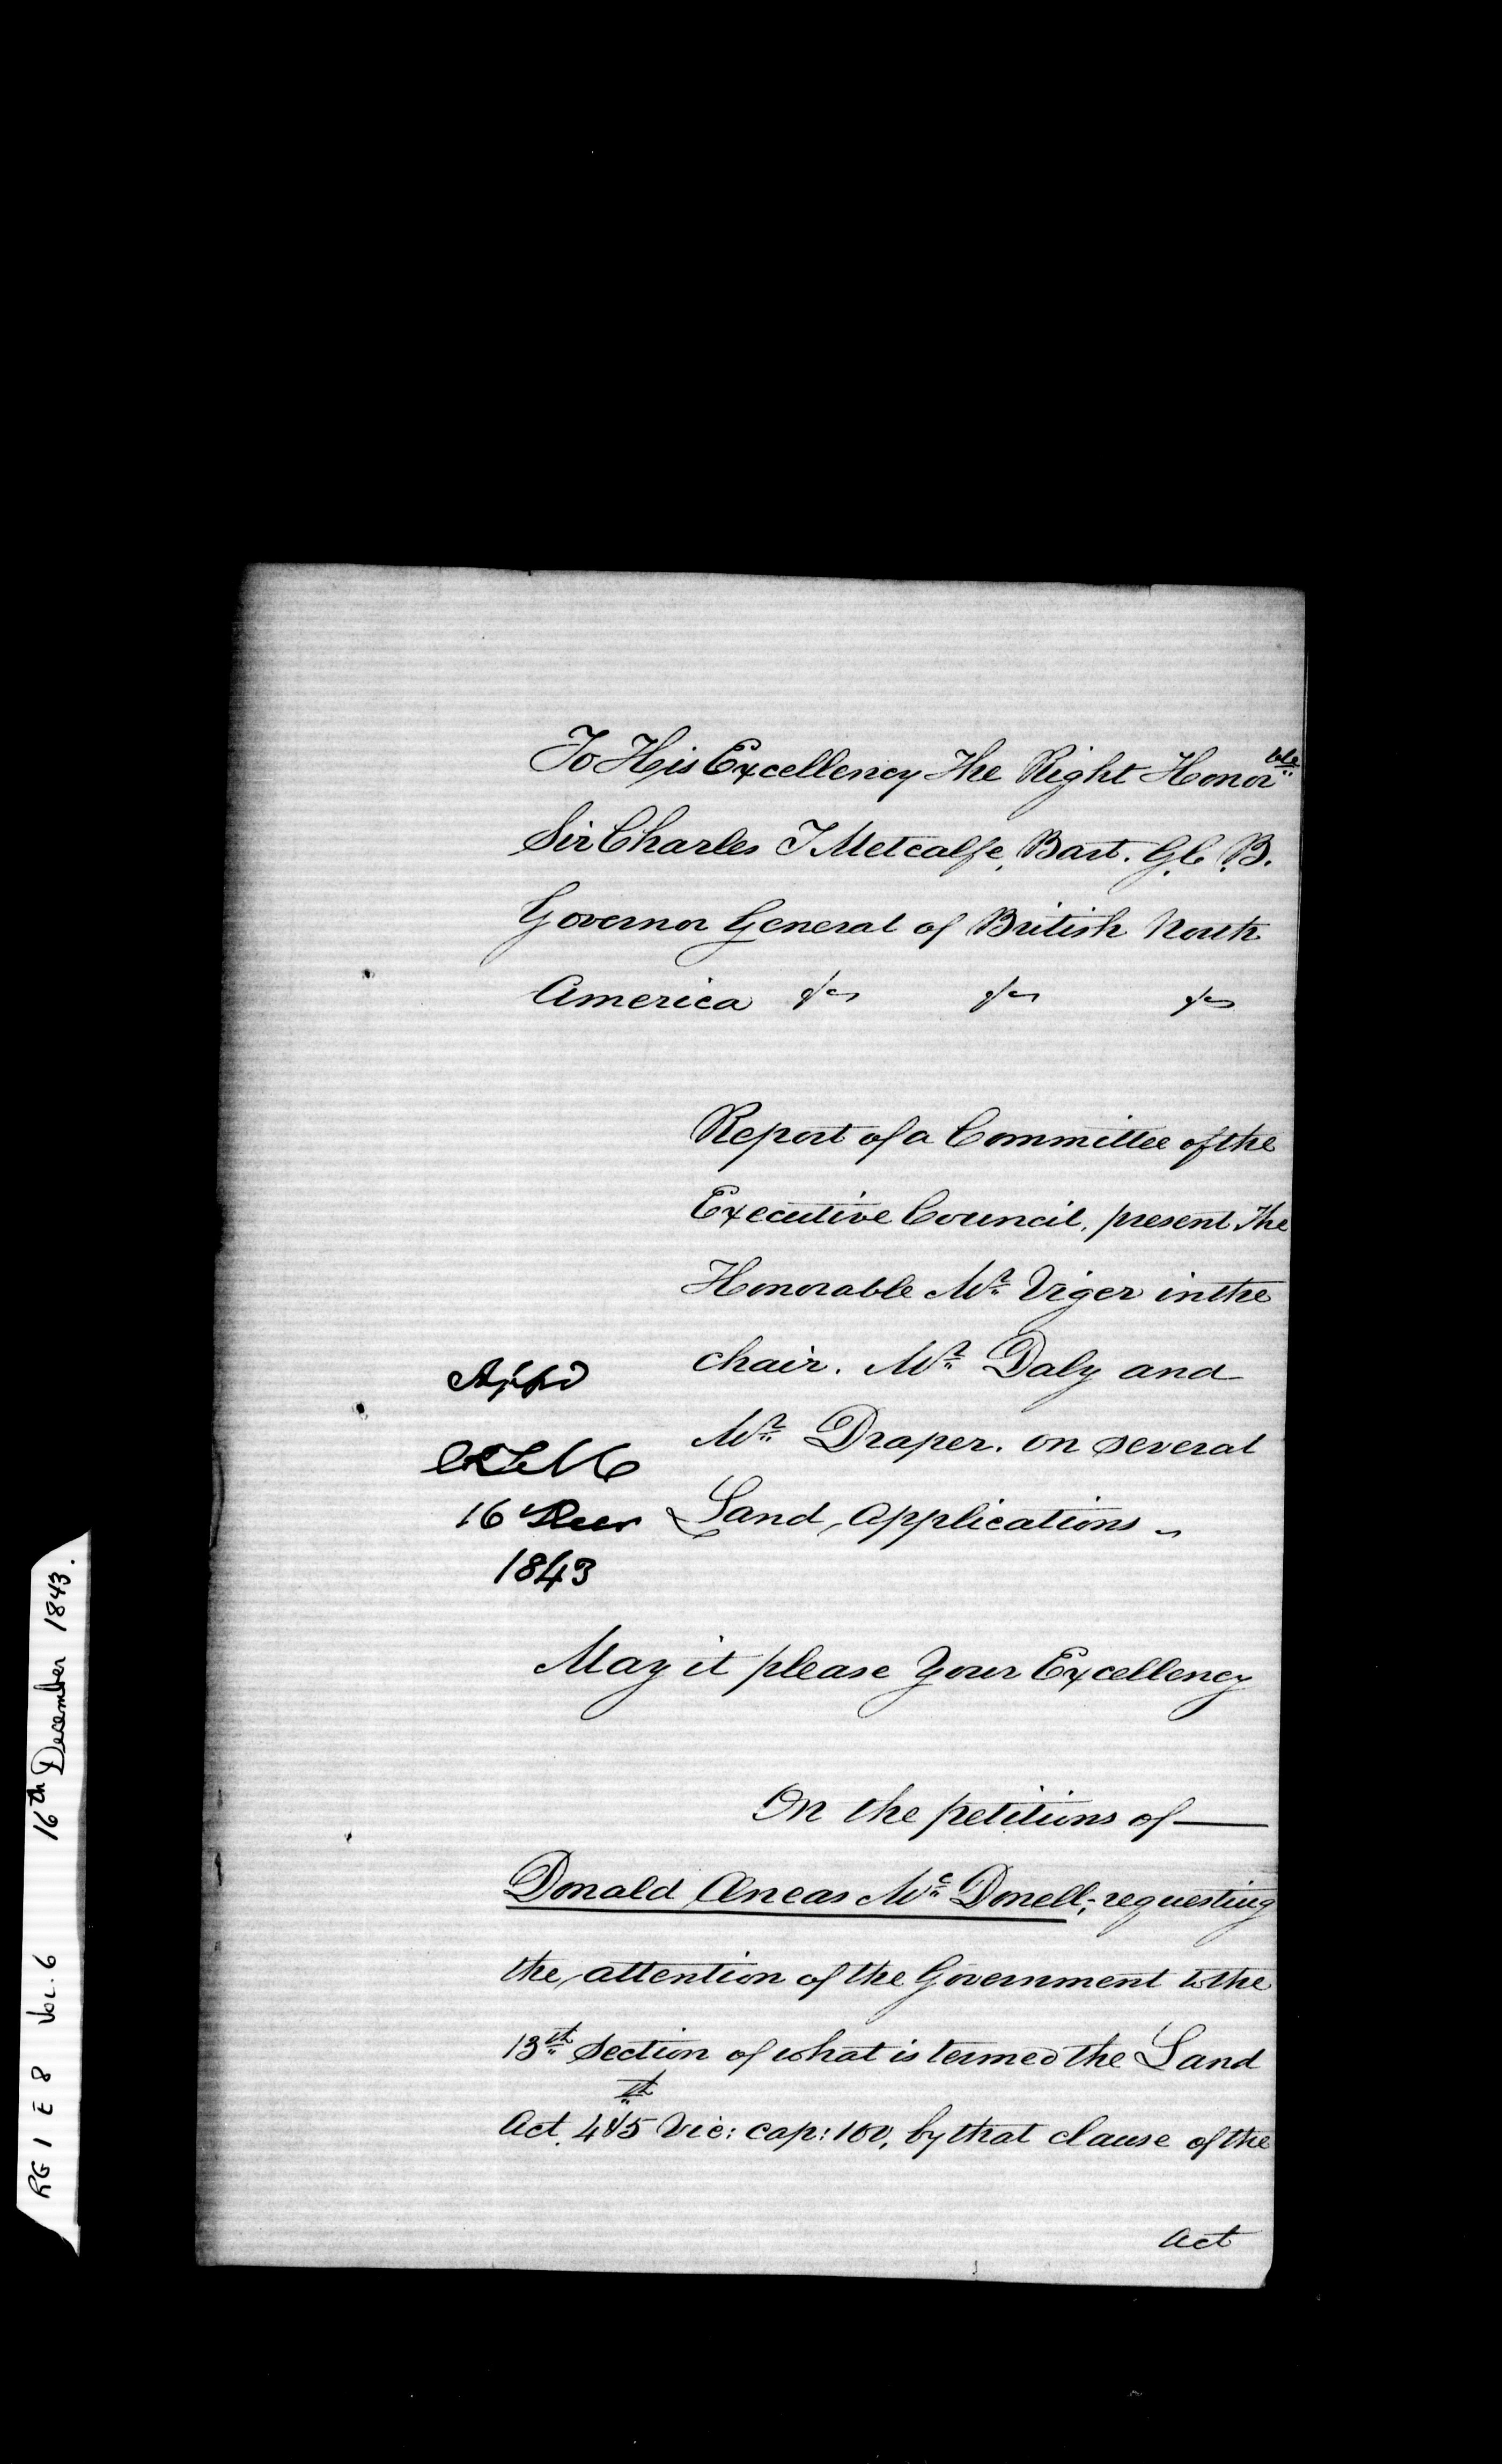 To His Excellency The Right Honor^ble
Sir Charles T Metcalfe, Bart. G.C.B.
Governor General of British North
America &c &c &c
Report of a Committee of the
Executive Council, present The
Honorable Mr. Viger in the
chair. Mr. Daly and
Mr. Draper. on several
Land Applications ~
App'd
CTM
16 Decr
1843
May it please Your Excellency
On the petitions of —
Donald Æneas Mc Donell; requesting
the attention of the Government to the
13th Section of what is termed the Land
Act. 4 & 5th Vic: cap: 100, by that clause of the
Act
RG 1 E 8 Vol. 6 16th December 1843.